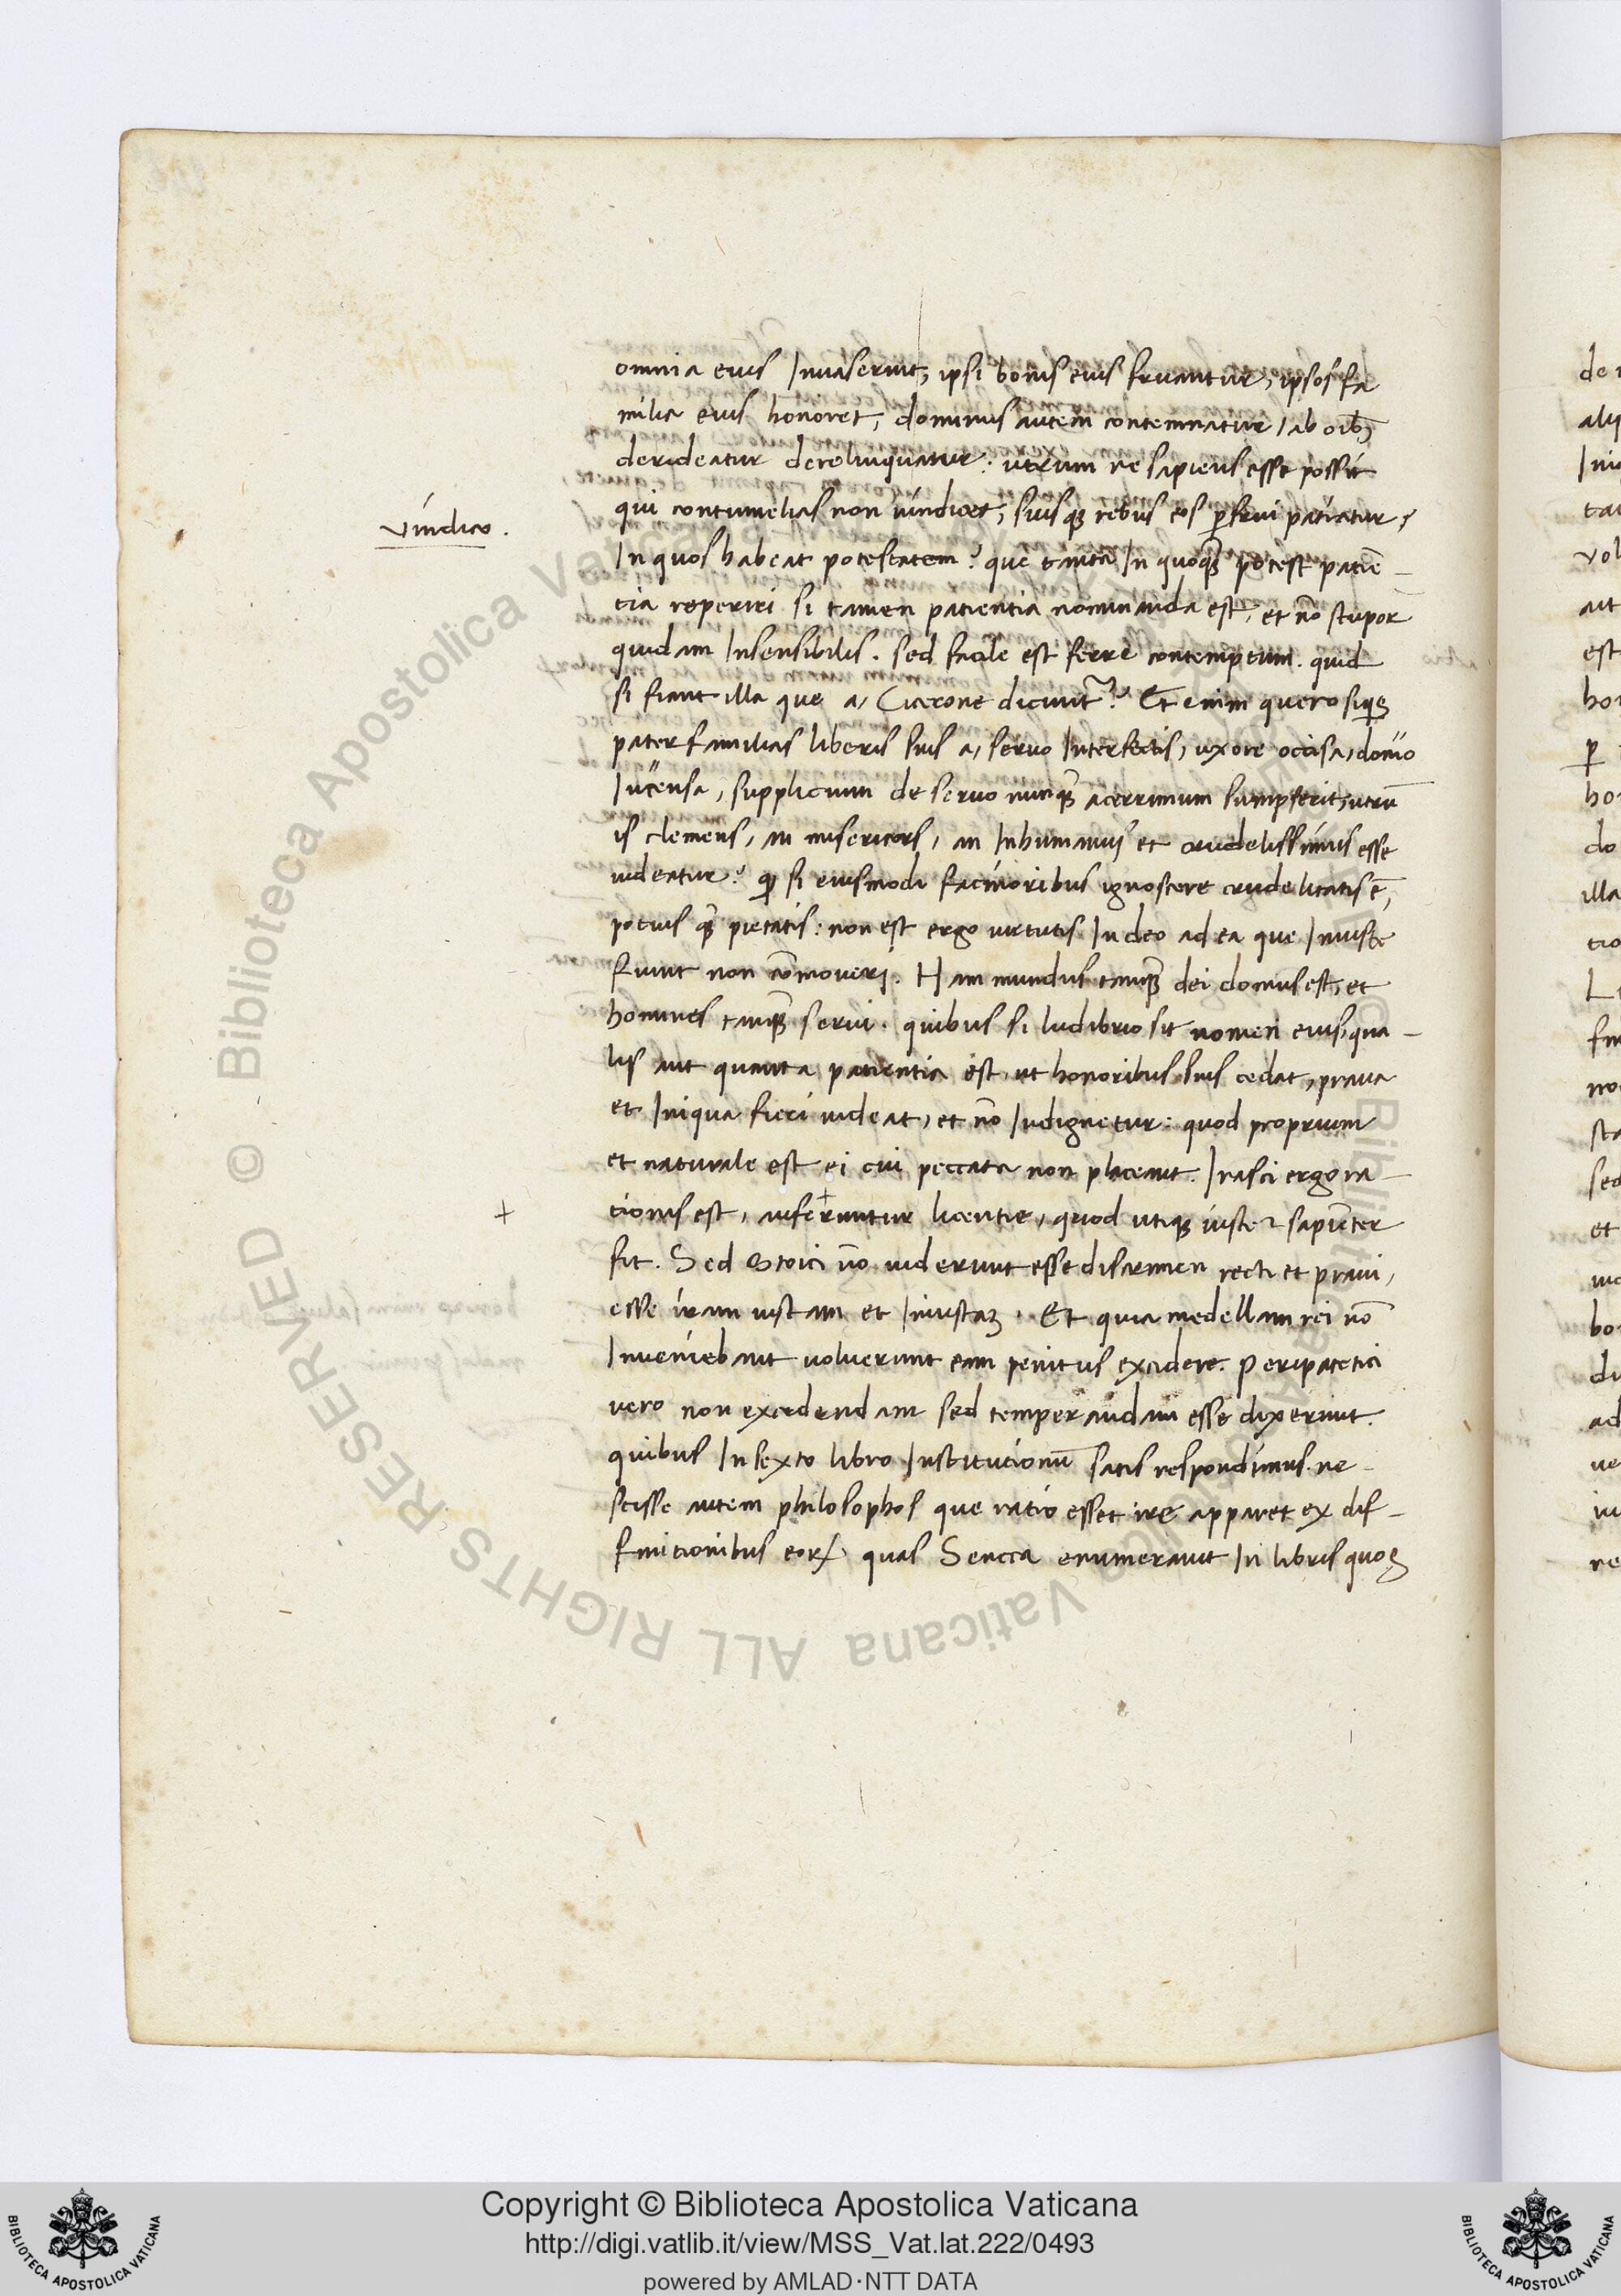 omnia eius Inuaserint, ipsi bonis eius fruantur, ipsos fa
milia eius honoret, dominus autem contemnatur, ab oĩbꝫ
derideatur derelinquatur: utrum ne sapiens esse possit
qui contumelias non uindicet, suisqꝫ rebus eos ꝑfrui patiatur,
vindico.
In quos habeat potestatem? que tanta In quoqꝫ potest patiẽ-
tia reperiri si tamen patientia nominanda est, et nõ stupor
quidam Insensibilis. sed facile est ferre contemptum. quid
si fiant illa que a, Cicerone dicunt̃? Et enim quero siqͥs
pater familias liberis suis a, seruo Interfectis, uxore occisa, domo
Incensa, supplicium de seruo nunqꝫ acerrimum sumpserit, utrũ
is clemens, an misericors, an Inhumanus et crudelissimus esse
uideatur? ꝙ si eiusmodi facinoribus ignoscere crudelitatis ẽ,
potius qꝫ pietatis: non est ergo uirtutis In deo ad ea que Iniuste
fiunt non cõmoueri. Nam mundus tanqꝫ dei domus est, et
homines tanqꝫ serui. quibus si ludibrio sit nomen eius, qua-
lis aut quanta patientia est, ut honoribus suis cedat, praua
et Iniqua fieri uideat, et nõ Indignetur: quod proprium
et naturale est ei cui peccata non placeant. Irasci ergo ra-
+
tionis est, auferuntur licentie, quod utiqꝫ iuste ⁊ sapiẽter
fit. Sed Stoici nõ uiderunt esse discrimen recti et praui,
esse iram iustam et Iniustaꝫ. Et quia medellam rei nõ
Inueniebant uoluerunt eam penitus excidere. Peripatetici
vero non excidendam sed temperandam esse dixerunt.
quibus In sexto libro Institutionũ satis respondimus. ne-
scisse autem philosophos que ratio esset ire apparet ex dif-
finitionibus eoꝝ quas Seneca enumerauit In libris quos
Copyright © Biblioteca Apostolica Vaticana
http://digi.vatlib.it/view/MSS_Vat.lat.222/0493
powered by AMLAD·NTT DATA